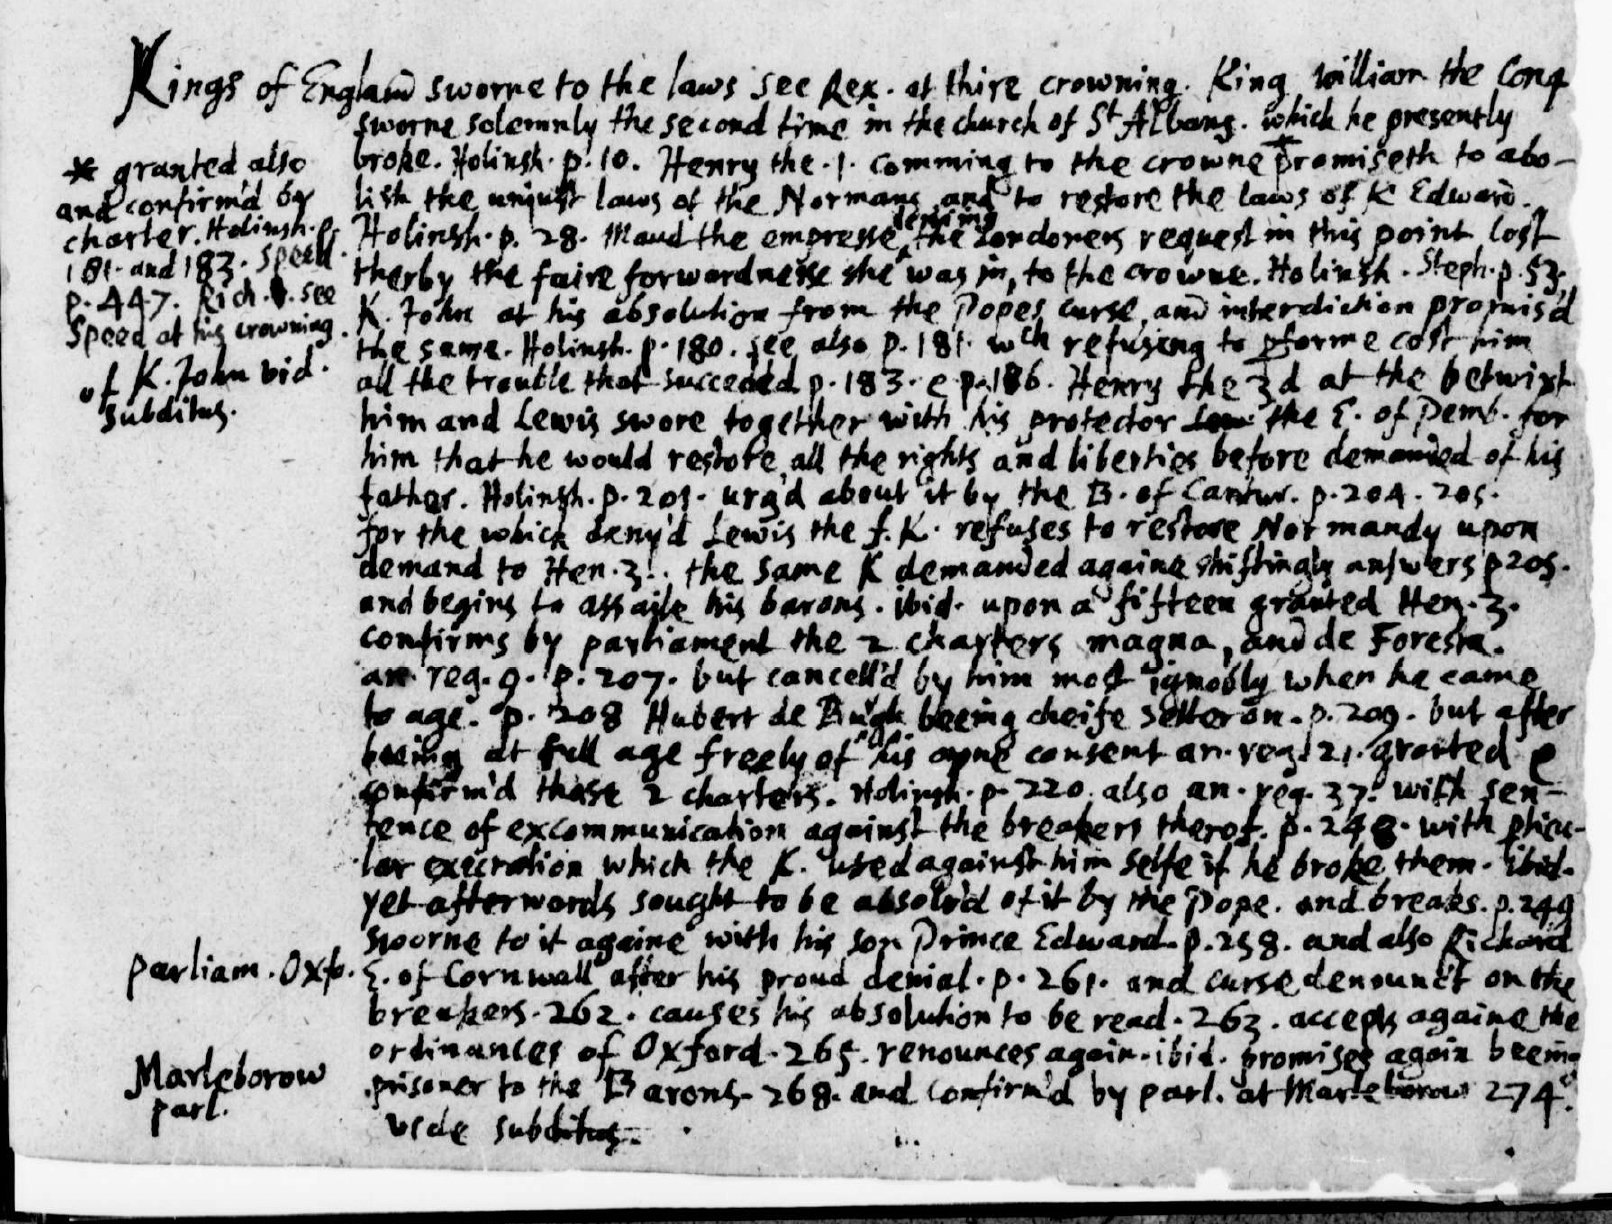 Kings of England sworne to the laws see Rex. at thire crowning. King William the Conq
sworne solemnly the second time in the church of St Albans. which he presently
broke. Holinsh. p. 10. Henry the .1. comming to the crowne * promiseth to abo-
lish the unjust laws of the Normans and to restore the laws of K Edward.
Holinsh. p. 28. Maud the empresse denying the Londoners request in this point lost
therby the faire forwardnesse she was in, to the crowne. Holinsh. Steph. p. 53.
K. John at his absolution from the Popes curse, and interdiction promis'd
the same. Holinsh. p. 180. see also p. 181. wch refusing to pforme cost him
all the trouble that succeded p. 183. e p. 186. Henry the 3d at the betwixt
him and Lewis swore together with his protector the E. of Pemb. for
him that he would restore all the rights and liberties before demanded of his
father. Holinsh. p. 201. urg'd about it by the B. of Cantur. p. 204. 205.
for the which deny'd Lewis the f. K. refuses to restore Normandy upon
demand to Hen. 3. the same K demanded againe shiftingly answers p 205.
and begins to assaile his barons. ibid. upon a fifteen granted Hen. 3.
confirms by parliament the 2 charters magna, and de Foresta.
an reg. 9. p. 207. but cancell'd by him most ignobly when he came
to age. p. 208 Hubert de Burgh beeing cheife setter on. p. 209. but after
beeing at full age freely of his owne consent an. reg. 21. granted e
confirm'd those 2 charters. Holinsh. p. 220. also an. reg. 37. with sen-
tence of excommunication against the breakers therof. p. 248. with pticu-
lar execration which the K. used against him selfe if he broke them. ibid.
yet afterwords sought to be absolv'd of it by the Pope. and breaks. p. 249
swoorne to it againe with his son Prince Edward. p. 258. and also Richard
E. of Cornwall after his proud denial. p. 261. and curse denounc't on the
breakers. 262. causes his absolution to be read. 263. accepts againe the
ordinances of Oxford. 265. renounces again. ibid. promises again beeing
prisoner to the Barons. 268. and confirm'd by parl. at Marleborow 274.
vide subditus.
* granted also
and confirm'd by
charter. Holinsh. p.
181. and 183. Speed.
p. 447. Rich. see
Speed at his crowning.
of K. John vid.
subditus.
parliam. Oxfo.
Marleborow
parl.